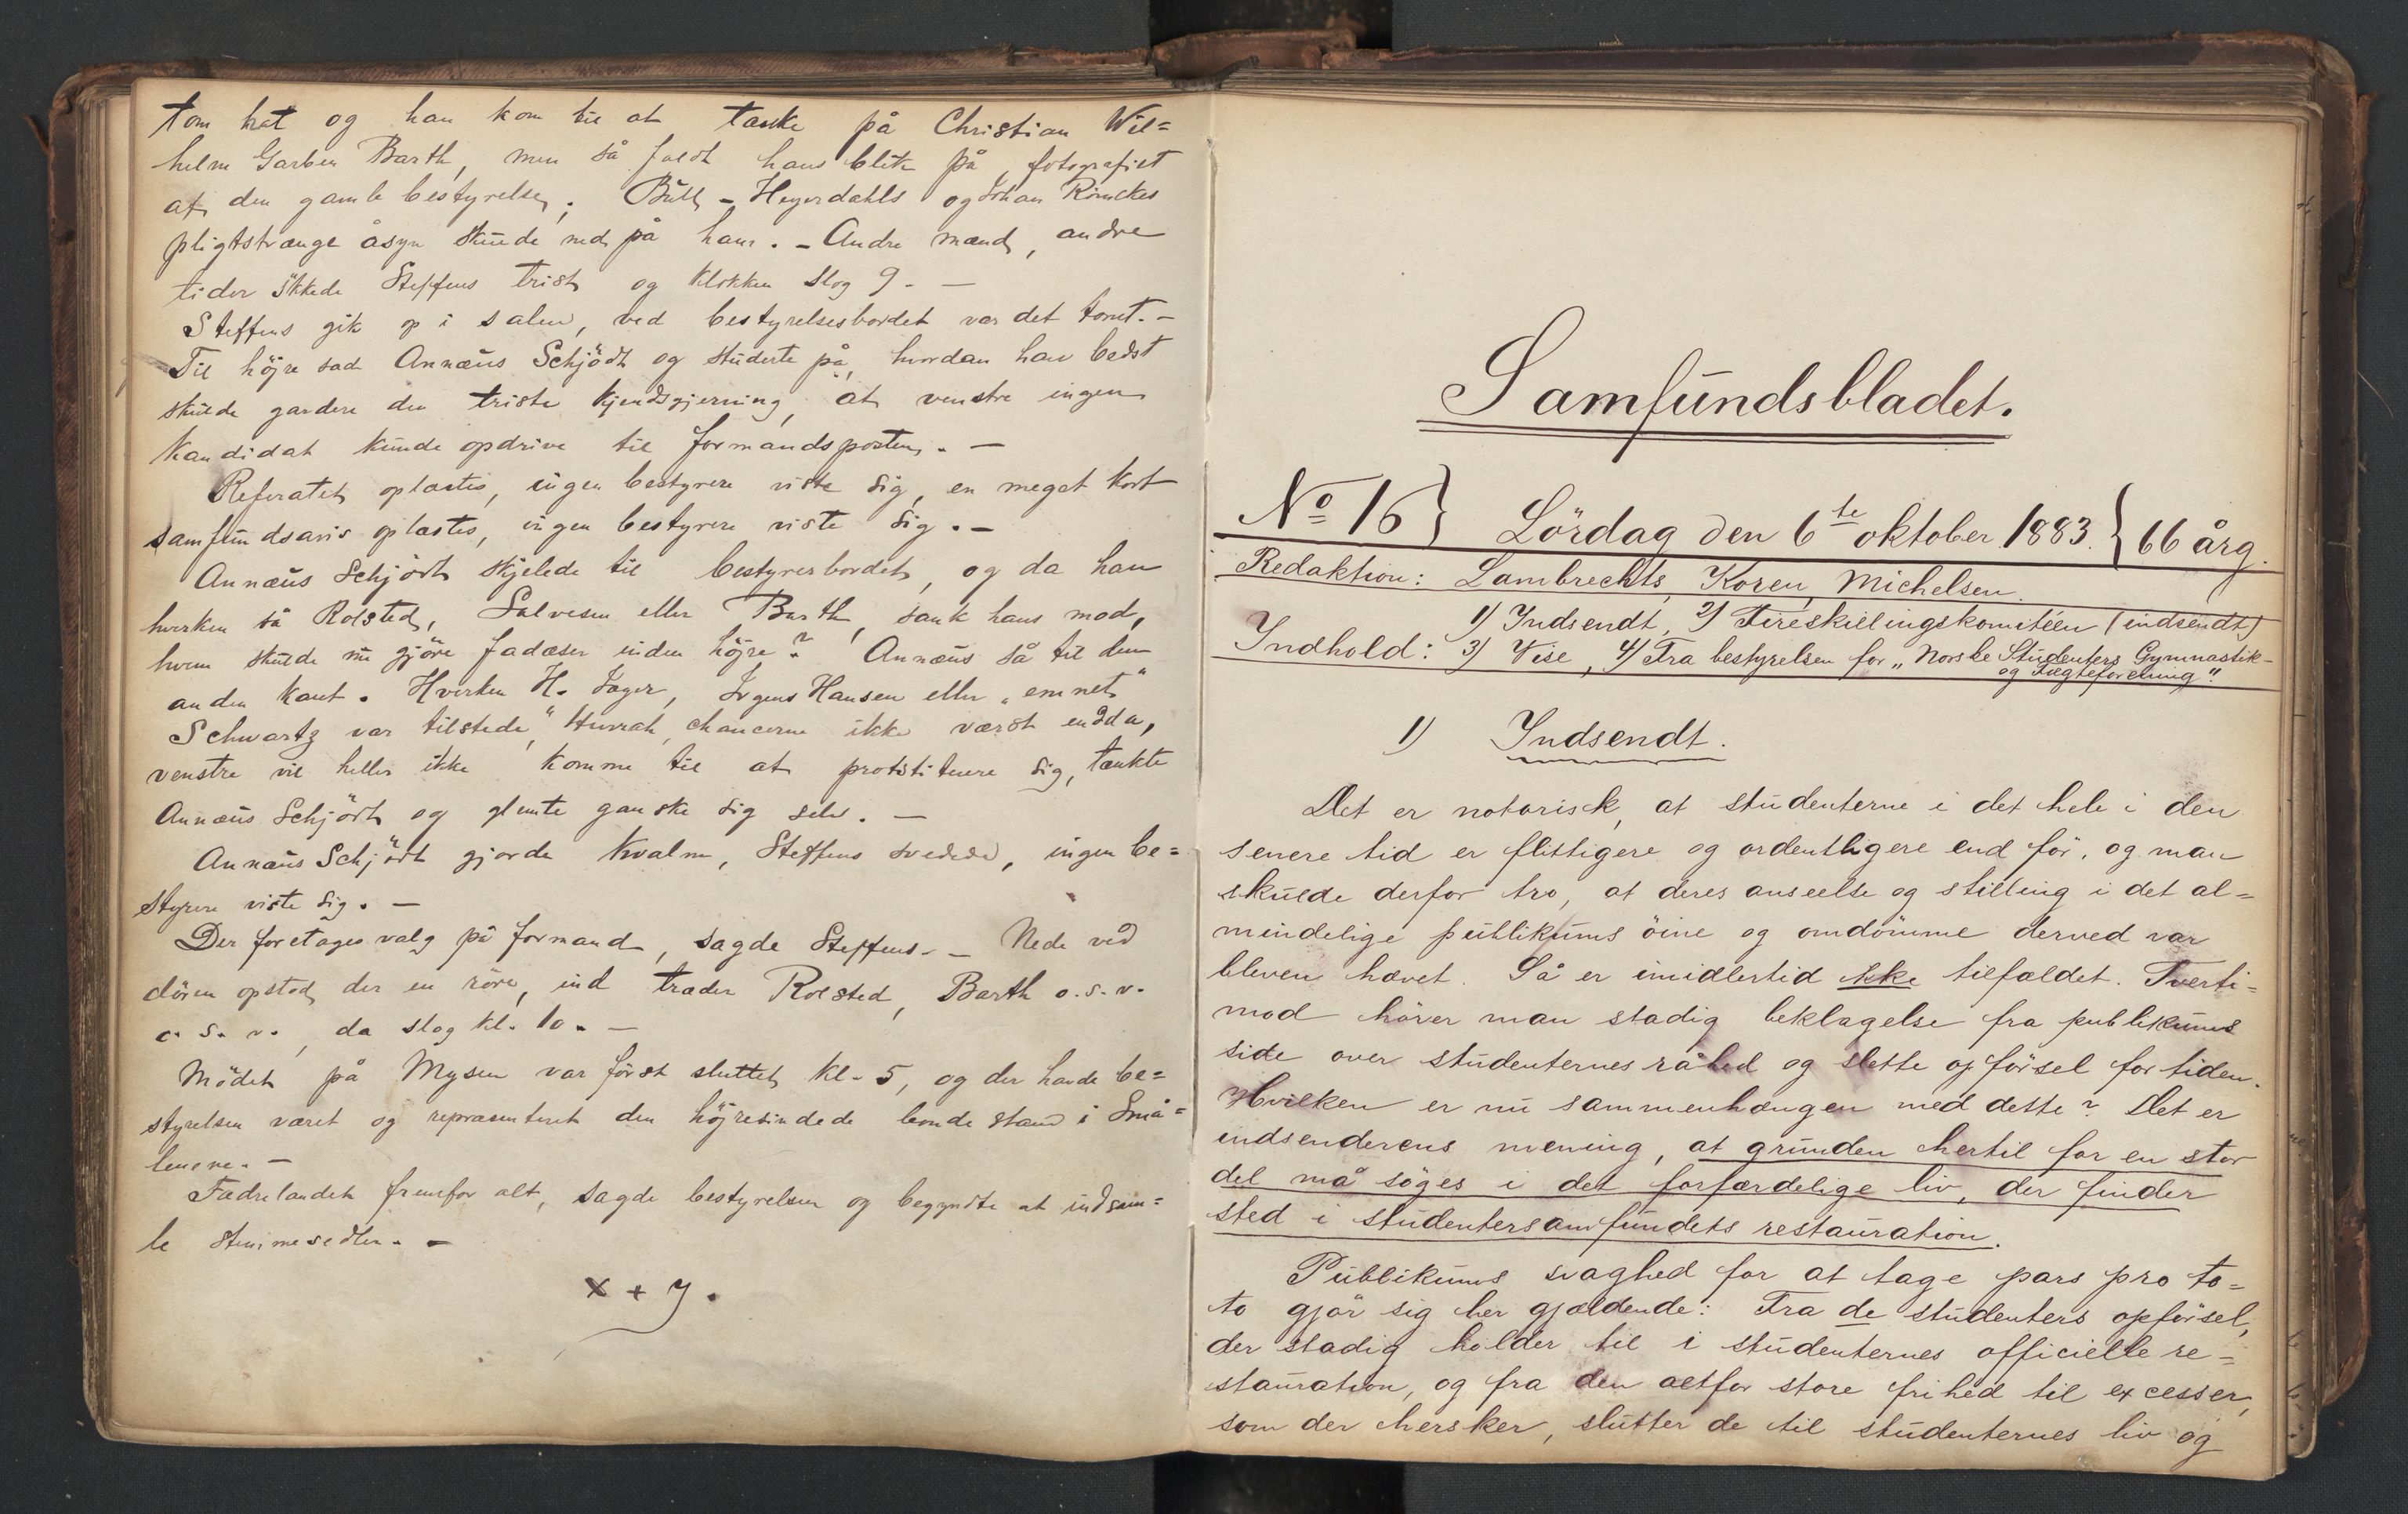 tom hat og han kom til at tænke på Christian Wil=
helm Garben Barth, men så faldt hans blik på fotografiet
af den gamle bestyrelse; Bull-Heyerdahls og Johan
pligtstrænge åsyn skuede ned på ham. - Andre mænd, andre
tider sukkede Steffens trist og klokken slog 9. -
Steffens gik op i salen, ved bestyrelsesbordet var det tomt. -
Til höjre sad Annæus Schjödt og studerte på, hvordan han bedst
skulde gardere den triste kjendsgjerning, at venstre ingen
kandidat kunde opdrive til formandsposten. -
Referatet oplæstes, ingen bestyrere viste sig, en meget kort
samfundsavis oplæstes, ingen bestyrere viste sig. -
Annæus Schjödt skjelede til bestyrerbordet, og da han
hverken så Rolsted, Salvesen eller Barth, sank hans mod,
hvem skulde nu gjöre fadæser inden höjre? Annæus så til den
anden kant. Hverken H. Jæger, Irgens Hansen eller "emnet"
Schwartz var tilstede, "Hurrah, chancerne ikke værst endda,
venstre vil heller ikke komme til at protstituere sig, tænkte
Annæus Schjödt og glemte ganske sig selv. -
Annæus Schjödt gjorde kvalm, Steffens svedede, ingen be=
styrere viste sig. -
Der foretages valg på formand, sagde Steffens. - Nede ved
dören opstod der en röre, ind træder Rolsted, Barth o.s.v.
o.s.v., da slog kl. 10. -
Mödet på Mysen var först sluttet kl. 5, og der havde be=
styrelsen været og repræsenteret den höjresindede bondestand i Små=
lenene. -
Fædrelandet fremfor alt, sagde bestyrelsen og begyndte at indsam=
le stemmesedler. -
x + y.
Samfundsbladet.
No 16} Lördag den 6te oktober 1883. {66 årg.
Redaktion: Lambrechts, Koren, Michelsen.
Indhold: 1) Indsendt, 2) Fireskillingskomitéen (indsendt)
3) Vise, 4) Fra bestyrelsen for "Norske Studenters Gymnastik-
og Fægteforening".
1) Indsendt.
Det er notorisk, at studenterne i det hele i den
senere tid er flittigere og ordentligere end för, og man
skulde derfor tro, at deres anseelse og stilling i det al=
mindelige publikums öine og omdömme derved var
bleven hævet. Så er imidlertid ikke tilfældet. Tverti=
mod hörer man stadig beklagelse fra publikums
side over studenternes råhed og slette opförsel for tiden.
Hvilken er nu sammenhængen med dette? Det er
indsenderens mening, at grunden hertil for en stor
del må söges i det forfærdelige liv, der finder
sted i studentersamfundets restauration.
Publikums svaghed for at tage pars pro to=
to gjör sig her gjældende: Fra de studenters opförsel,
der stadig holder til i studenternes officielle re=
stauration, og fra den altfor store frihed til excesser,
som der hersker, slutter de til studenternes liv og